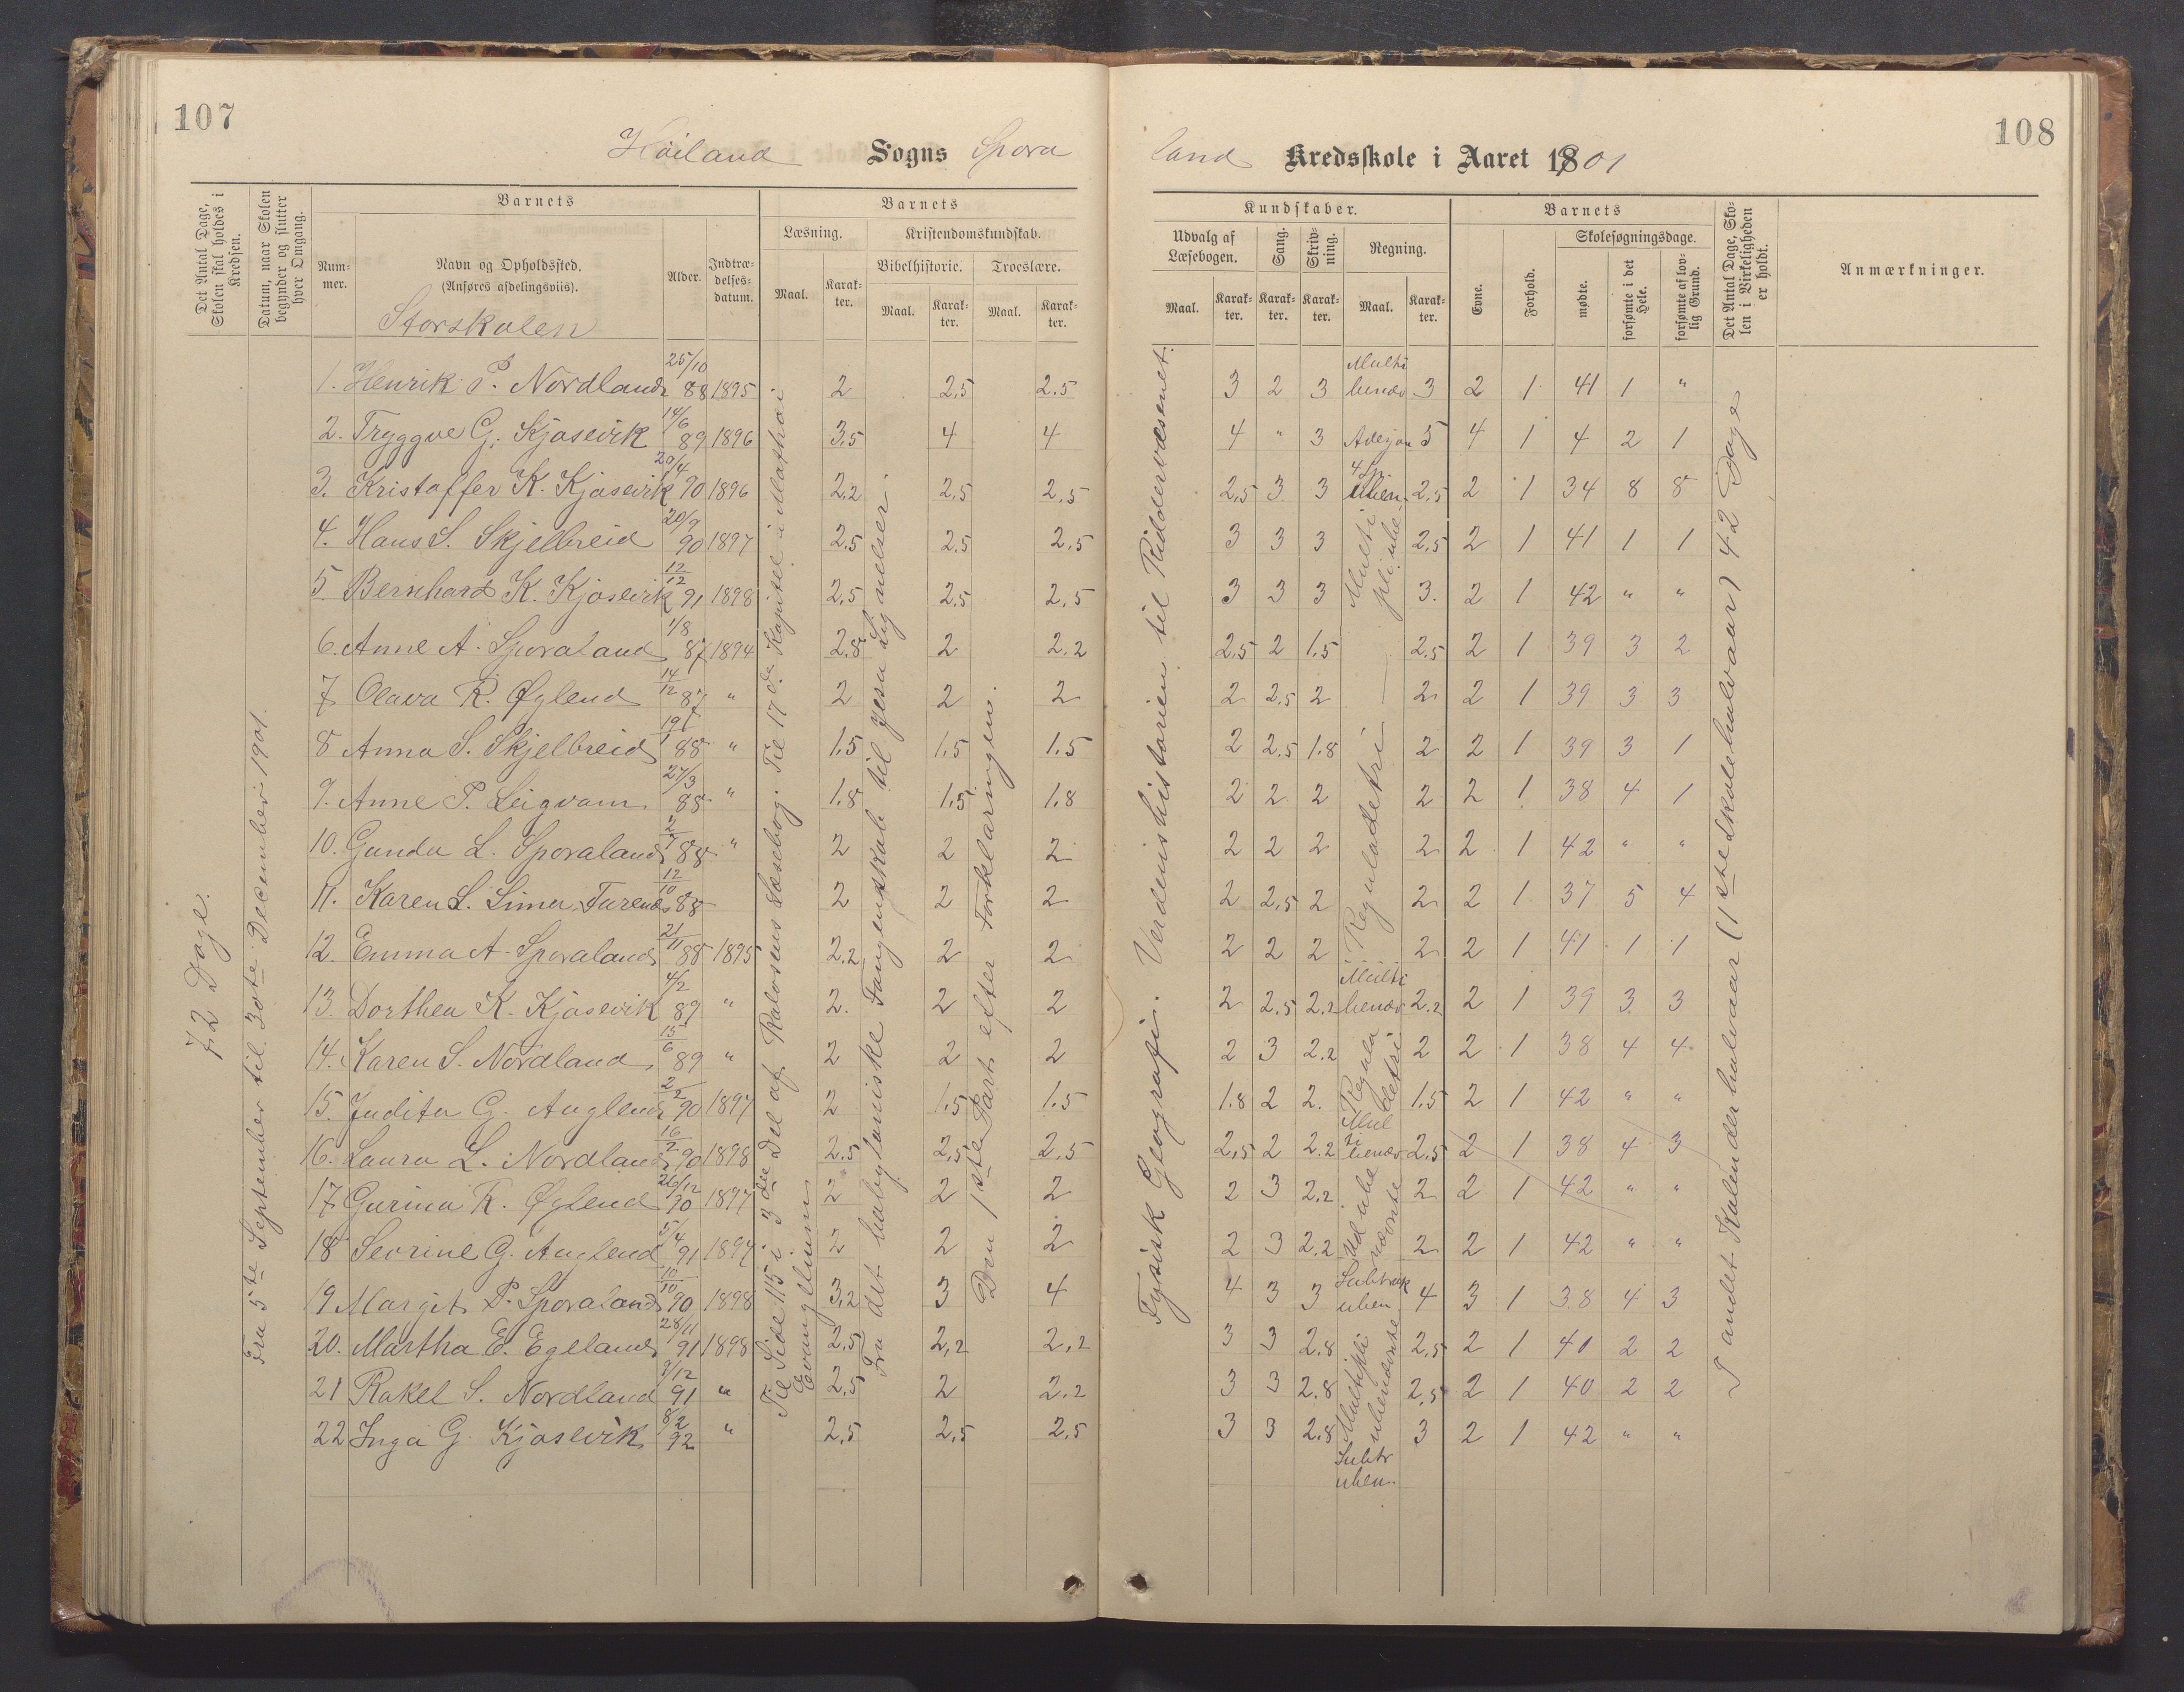 107
108
Høiland Sogns Spora
land Kredsskole i Aaret 1901
Det Antal Dage, Skolen skal holdes i Kredsen.
Datum, naar Skolen begynder og slutter hver Omgang.
Barnets
Num-
mer.
Navn og Opholdssted.
(Anføres afdelingsviis).
Storskolen
Alder.
Indtræ-
delses-
datum.
Barnets
Læsning.
Maal.
Karak-
ter.
Kristendomskundskab.
Bibelhistorie.
Maal.
Karak-
ter.
Troeslære.
Maal.
Karak-
ter.
Kundskaber.
Udvalg af
Læsebogen.
Maal.
Karak-
ter.
Sang.
Karak-
ter.
Skriv-
ning.
Karak-
ter.
Regning.
Maal.
Karak-
ter.
Barnets
Evne.
Forhold.
Skolesøgningsdage.
mødte.
forsømte i det Hele.
forsømte af lov-
lig Grund.
Det Antal Dage, Sko-
len i Virkeligheden
er holdt.
Anmærkninger.
72 Dage.
Fra 5te September til 30te December 1901.
Til Side 115 i 3die Del af Rolvsens Læsebog. Til 17de Kapitel i Mathæi
Evangelium
Fra det babyloniske Fangenskab til Jesu Lignelser.
Den 1ste Part efter Forklaringen.
Fysisk Geografi. Verdenshistorien til Ridderværsenet.
I andet Kalenderhalvaar (1ste Skolehalvaar) 42 Dage
1. Henrik P. Nordland 25/10 88 1895 2 2,5 2.5 3 2 3 Multi benæv 3 2 1 41 1 "
2. Tryggve G. Kjosevik 14/6 89 1896 3,5 4 4 4 " 3 Adisjon 5 4 1 4 2 1
3. Kristoffer K. Kjosevik 20/4 90 1896 2,2 2,5 2,5 2,5 3 3 4 Sp. uben. 2,5 2 1 34 8 8
4. Hans S. Skjelbreid 20/9 90 1897 2,5 2,5 2,5 3 3 3 Multi pli ube 2,5 2 1 41 1 1
5 Bernhard K. Kjosevik 12/12 91 1898 2,5 2,5 2,5 3 3 3 3. 2 1 42 " "
6. Anne A. Sporaland 1/8 87 1894 2.8 2 2.2 2.5 2 1.5 2.5 2 1 39 3 2
7 Olava R. Øglend 14/12 87 " 2 2 2 2 2.5 2 2 2 1 39 3 3
8 Anna S. Skjelbreid 19/1 88 " 1.5 1.5 1.5 2 2.5 1.8 Reguladetri 2 2 1 39 3 1
9. Anne P. Leigvam 27/3 88 " 1.8 1.5 1.8 2 2 2 2 2 1 38 4 1
10. Gunda L. Sporaland 2/7 88 " 2 2 2 2 2 2 2 2 1 42 " "
11. Karen L. Simer, Furenes 12/10 88 2 2 2 2 2,5 2 2 2 1 37 5 4
12. Emma A. Sporaland 21/11 88 1895 2.2 2 2 2 2 2 2 2 1 41 1 1
13. Dorthea K. Kjosevik 4/2 89 " 2. 2 2 2 2.5 2.2 Multi benæv 2.2 2 1 39 3 3
14. Karen S. Nordland 15/6 89 " 2 2 2 2 3 2.2 Regula detri 2 2 1 38 4 4
15. Judita G. Auglend 2/2 90 1897 2 1.5 1.5 1.8 2 2. 1.5 2 1 42 " "
16. Laura L. Nordland 16/2 90 1898 2.5 2,5 2.5 2,5 2 2.2 Mul ti benæv 2.5 2 1 38 4 3
17 Gurina R. Øglend 26/12 90 1897 2 2 2 2 3 2.2 2 2 1 42 " "
18 Sevrine G. Auglend 5/4 91 1897 2 2 2 2 3 2.2 2 2 1 42 " "
19 Margit P. Sporaland 10/10 90 1898 3,2 3 4 4 3 3 Subtrak uben 4 3 1 38 4 3
20. Martha E. Egeland 28/11 91 1898 2.5 2,2 2,2 3 3 2.8 Multipli ubenævnte 2,5 2 1 40 2 2
21 Rakel S. Nordland 9/12 91 " 2.5 2 2.2 3 3 2.8 2,5 2 1 40 2 2
22 Inga G. Kjosevik 8/2 92 " 2,5 2,5 2,5 3 3 2.8 Subtr uben. 3 2 1 42 " "